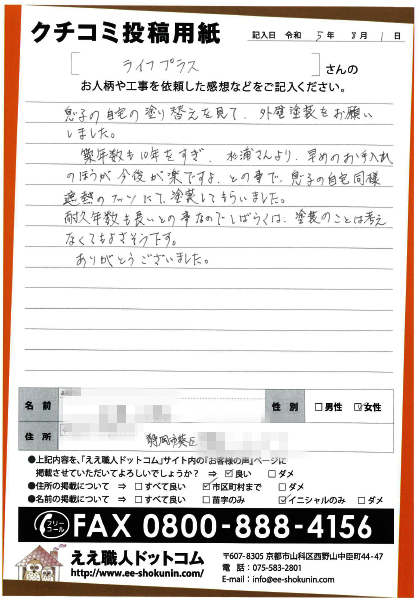 クチコミ投稿用紙
記入日 令和 5年 8月 1日
[ ライフプラス ] さんの
お人柄や工事を依頼した感想などをご記入ください。
息子の自宅の塗り替えを見て、外壁塗装をお願い
しました。
築年数も10年をすぎ、松浦さんより、早めのお手入れ
のほうが今後が楽ですよ、との事で、息子の自宅同様
遮熱の フッソ にて、塗装してもらいました。
耐久年数も長いとの事なのでしばらくは、塗装のことは考え
なくてもよさそうです。
ありがとうございました。
名前
性別 □男性 ☑女性
住所 静岡市葵区
●上記内容を、「ええ職人ドットコム」サイト内の「お客様の声」ページに
掲載させていただいてよろしいでしょうか? ⇒ ☑良い □ダメ
●住所の掲載について ⇒ □すべて良い ☑市区町村まで □ダメ
●名前の掲載について ⇒ □すべて良い □苗字のみ ☑イニシャルのみ □ダメ
フリーコール FAX 0800-888-4156
ええ職人ドットコム
http://www.ee-shokunin.com/
〒607-8305 京都市山科区西野山中臣町44-47
電話:075-583-2801
E-mail:info@ee-shokunin.com